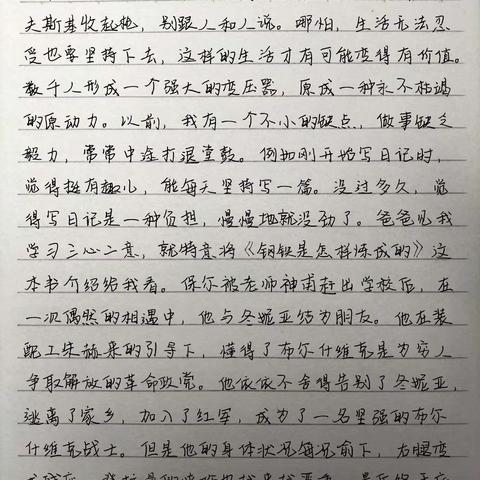 夫斯基收起枪，别跟人和人说。哪怕，生活无法忍
受也要坚持下去，这样的生活才有可能变得有价值。
数千人形成一个强大的变压器，原成一种永不枯竭
的原动力。以前，我有一个不小的缺点，做事缺乏
毅力，常常中途打退堂鼓。例如刚开始写日记时，
觉得挺有趣儿，能每天坚持写一篇。没过多久，觉
得写日记是一种负担，慢慢地就没劲了。爸爸见我
学习三心二意，就特意将《钢铁是怎样炼成的》这
本书介绍给我看。保尔被老师神甫赶出学校后，在
一次偶然的相遇中，他与冬妮亚结为朋友。他在装
配工朱赫来的引导下，懂得了布尔什维克是为穷人
争取解放的革命政党。他依依不舍得告别了冬妮亚，
逃离了家乡，加入了红军，成为了一名坚强的布尔
什维克战士。但是他的身体状况每况俞下，右腿变